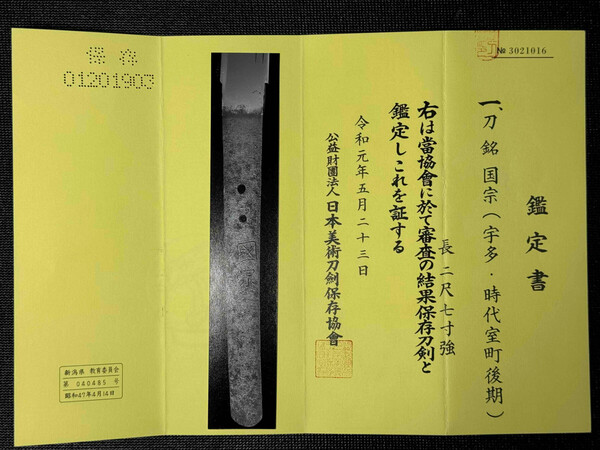 № 3021016
鑑定書
一、刀 銘 国宗(宇多・時代室町後期)
長 二尺七寸強
右は當協會に於て審査の結果保存刀剣と
鑑定しこれを証する
令和元年五月二十三日
公益財團法人 日本美術刀劍保存協會
國宗
保存
01201903
新潟県 教育委員会
第 040485 号
昭和47年4月14日